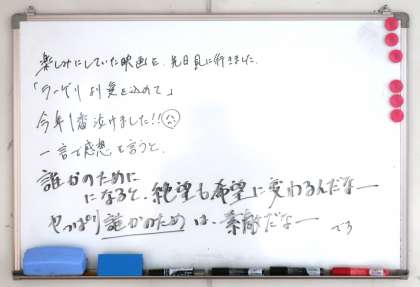 楽しみにしていた映画を、先日見に行きました。
「ラーゲリより愛を込めて」
今年1番泣けました!!
一言で感想を言うと、
誰かのために
になると、絶望も希望に変わるんだなー
やっぱり誰かのためは、素敵だなー
です